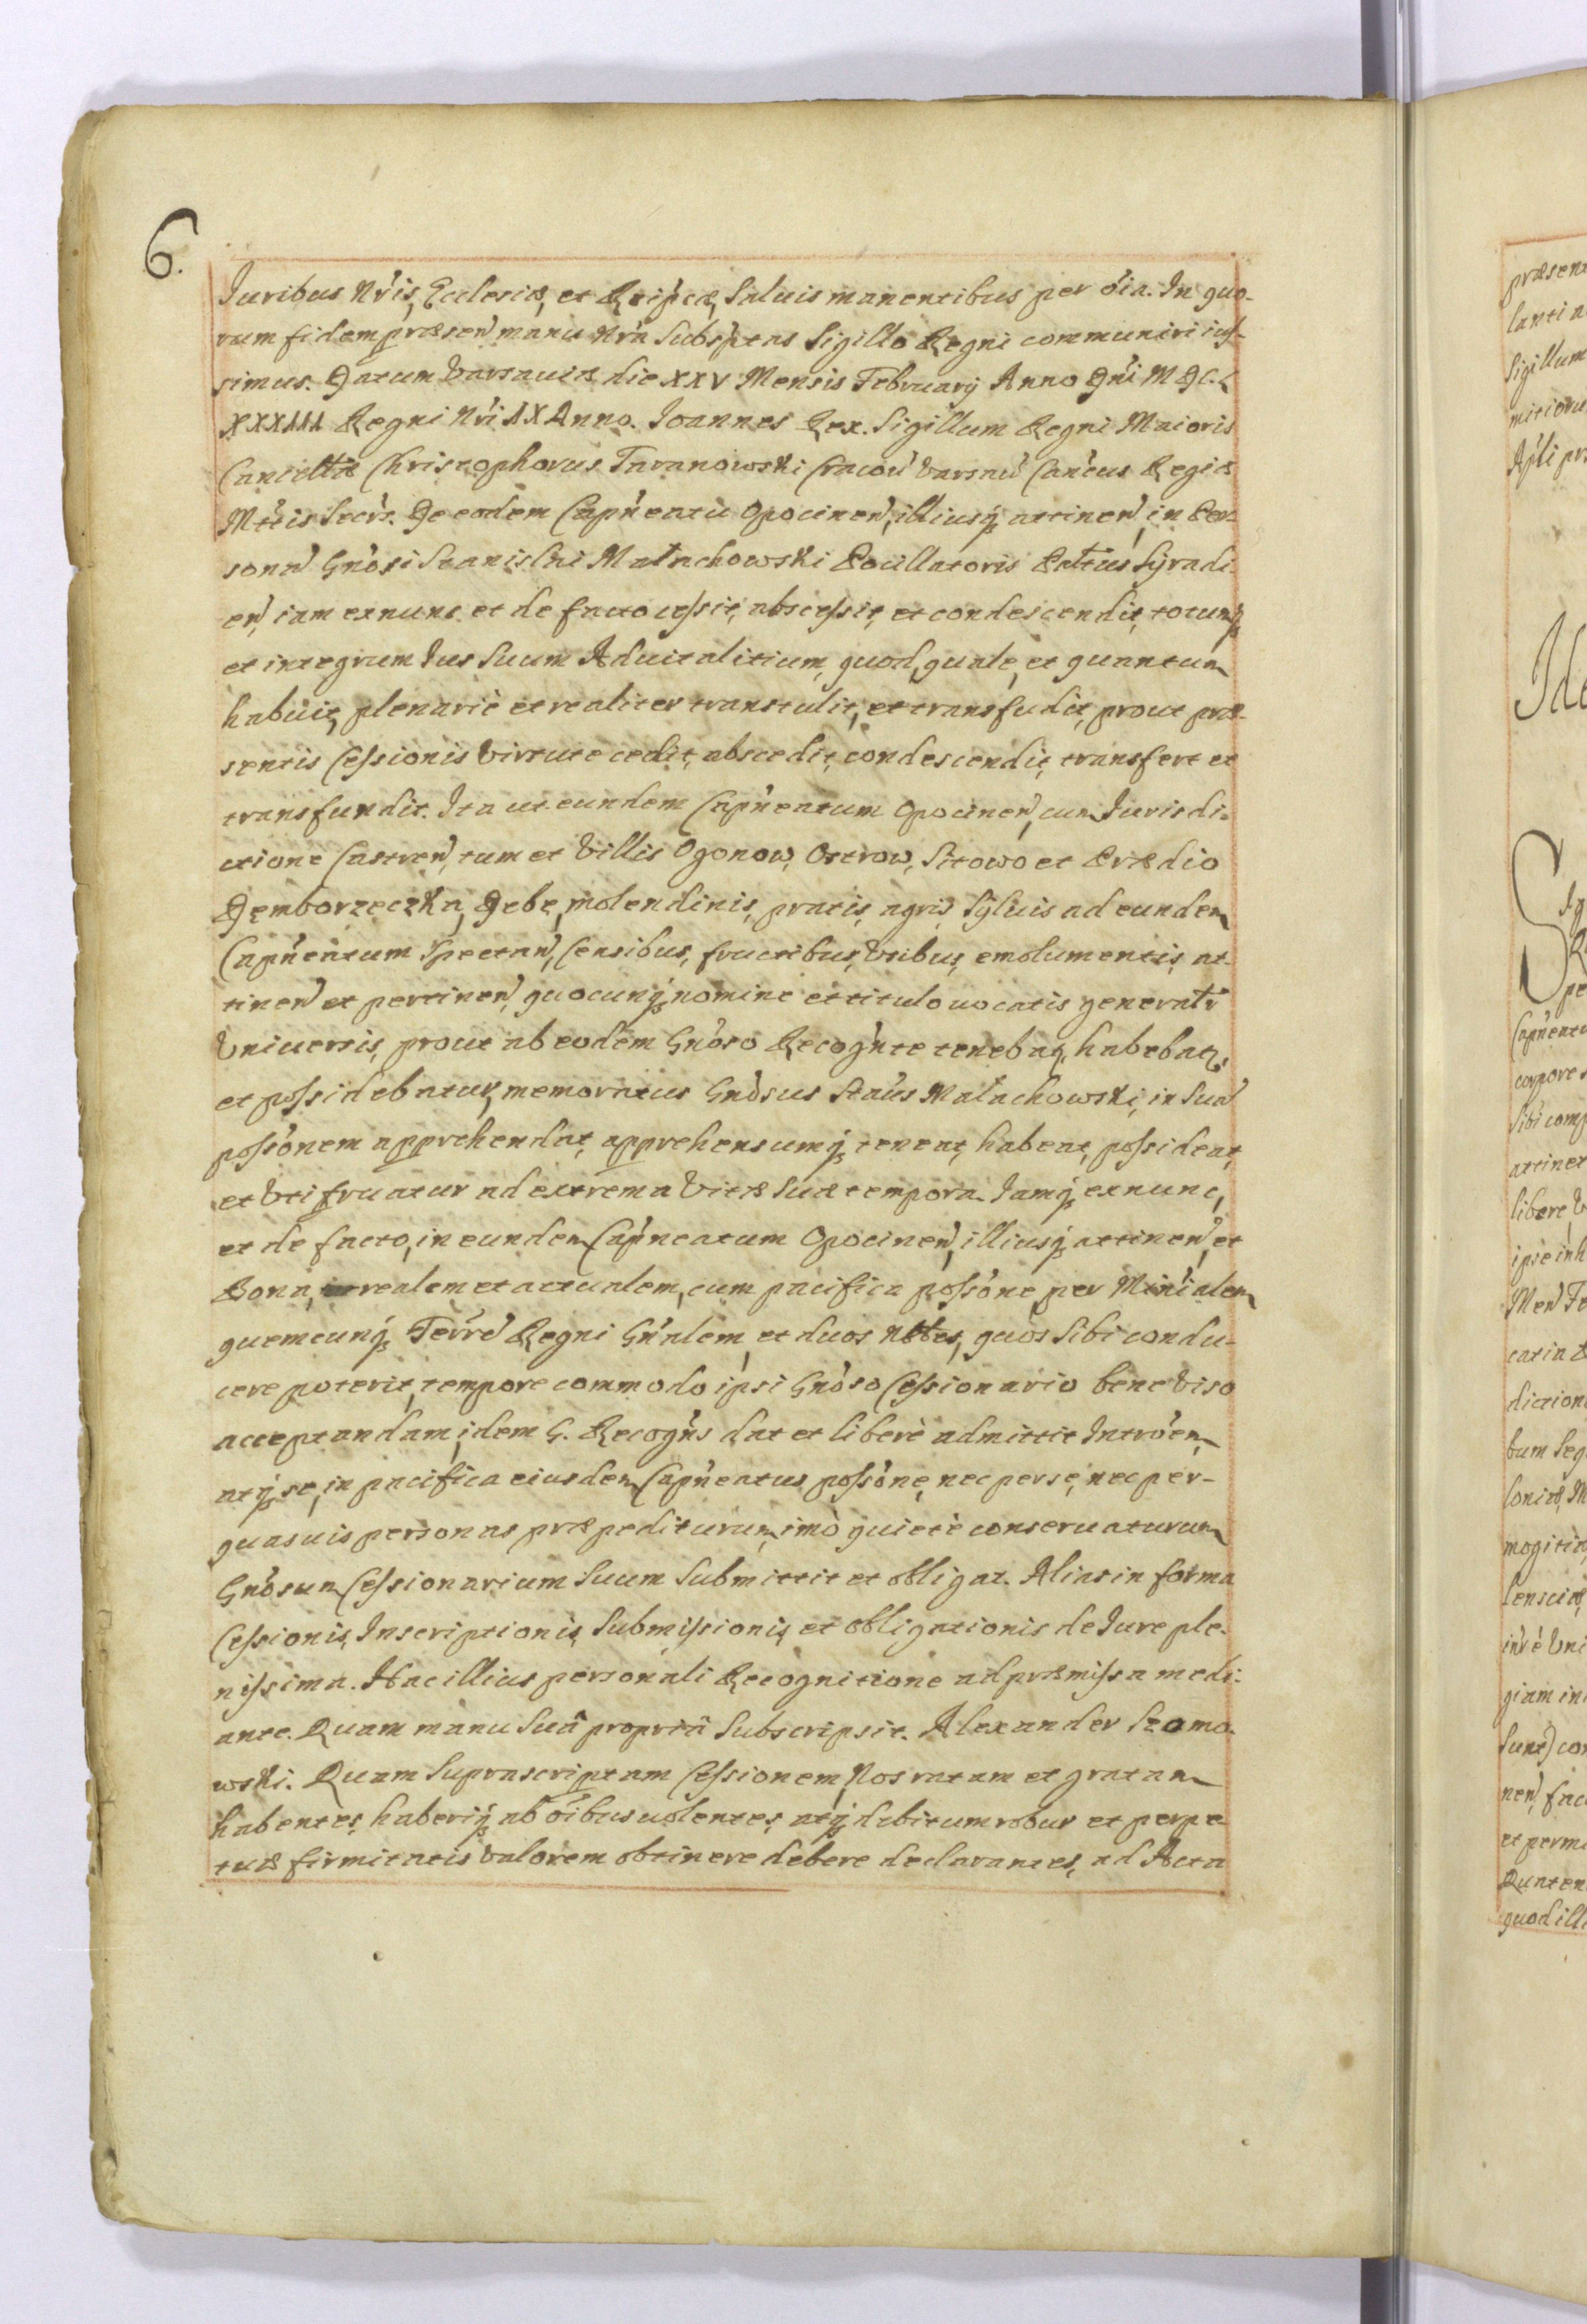 6.
Juribus Nr̃is, Ecclesiæ, et Reipcæ, Saluis manentibus per oĩa. In quo-
rum fidem præseñ manu Nrã Subsp̃tas Sigillo Regni communiri ius-
simus. Datum Varsauiæ die XXV Mensis February Anno Dñi M DC. L
XXXIII Regni Nr̃i IX Anno. Joannes Rex. Sigillum Regni Maioris
Cancellæ Christophorus Taranowski Cracoũ Varsaũ Cañcus Regiæ
Mttis Secr̃s. De eodem Capñeatu Opocineñ, illiusq; attineñ, in Per-
sonã Gñosi Stanislai Małachowski Pocillatoris Pałtus Syradi-
eñ, iam exnunc et de facto cessit, abscessit, et condescendit, totumq;
et integrum Jus Suum Aduitalitium, quod, quale, et quantum
habuit, plenariè et realiter transtulit, et transfudit, prout præ-
sentis Cessionis Virtute cedit, abscedit, condescendit, transfert et
transfundit. Ita ut eundem Capñeatum Opocineñ, cum Jurisdi-
ctione Castreñ, tum et Villis Ogonow, Ostrow, Sitowo et Prædio
Dęmborzeczka, Dębe, molendinis, pratis, agris, Syluis ad eundem
Capñeatum Spectañ, Censibus, fructibus, Vsibus, emolumentis, at-
tineñ et pertineñ, quocunq; nomine et titulo uocatis generałr
Vniuersis, prout ab eodem Gñoso Recogñte tenebat̃, habebat̃,
et possidebatur, memoratus Gñosus Staũs Małachowski, in Suã
possõnem apprehendat, apprehensumq; teneat, habeat, possideat,
et Vti fruatur ad extrema Vitæ Suæ tempora. Jamq; exnunc,
et de facto, in eundem Capñeatum Opocineñ, illiusq; attineñ, et
Bona, realem et actualem, cum pacifica possõne, per Miñialem
quemcunq; Terrẽ Regni Gñalem, et duos Nobłes, quos Sibi condu-
cere poterit, tempore commodo ipsi Gñoso Cessionario bene Viso
acceptandam, idem G. Recogñs dat et liberè admittit Intrõem,
atq; se, in pacifica eiusdem Capñeatus possõne, nec per se, nec per-
quasuis personas præpediturum, imò quietè conseruaturum
Gñosum Cessionarium Suum Submittit et obligat. Alias in forma
Cessionis, Inscriptionis, Submissionis, et obligationis de Jure ple-
nissima. Hac illius personali Recognitione ad præmissa medi-
ante. Quam manu Suâ propriâ Subscripsit. Alexander Szamo-
wski. Quam Suprascriptam Cessionem, Nos ratam et gratam
habentes, haberiq; ab oĩbus uolentes, atq; debitum robur et perpe-
tuæ firmitatis valorem obtinere debere declarantes, ad Acta